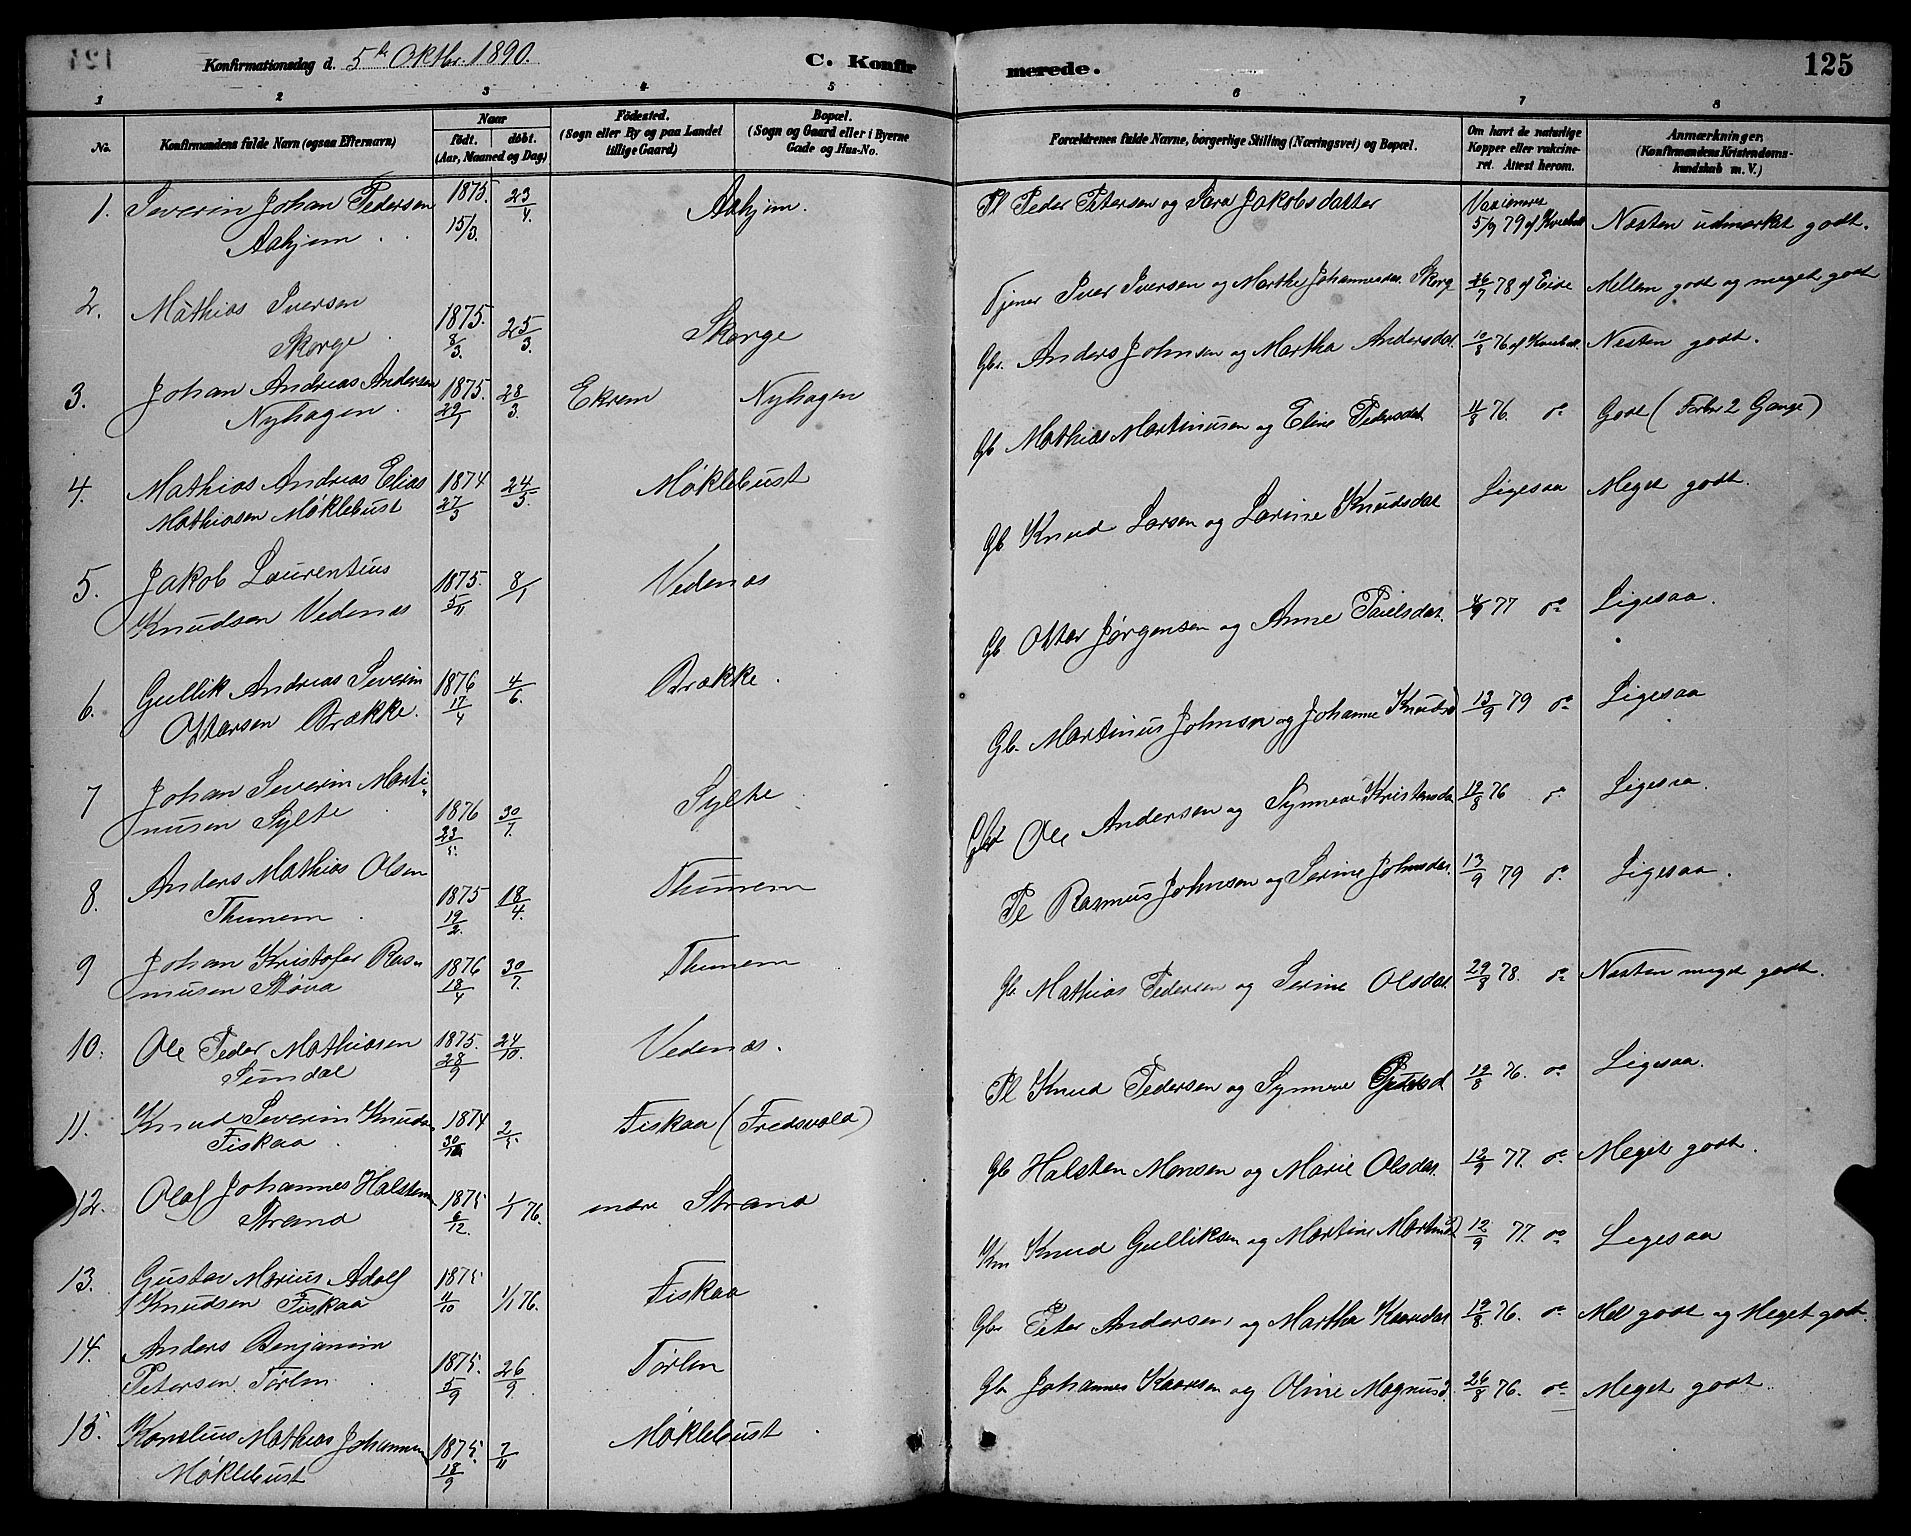 Konfirmationsdag d. 5te Oktbr. 1890.
C. Konfir
merede.
125
1 2 3 4 5 6 7 8
No.
Konfirmandens fulde Navn (ogsaa Efternavn)
Naar
født. døbt.
(Aar, Maaned og Dag)
Fødested.
(Sogn eller By og paa Landet
tillige Gaard)
Bopæl.
(Sogn og Gaard eller i Byerne
Gade og Hus-No.
Forældrenes fulde Navne, borgerlige Stilling (Næringsvei) og Bopæl.
Om havt de naturlige
Kopper eller vakcine-
ret. Attest herom.
Anmærkninger,
(Konfirmandens Kristendoms-
kundskab m. V.)
1. Severin Johan Pedersen 1875. 23/4. Aahjem.
Aahjem 15/3.
Pl Peder Petersen og Sara Jakobsdatter
5/9 79 af Nesten udmærket godt.
2. Mathias Iversen 1875. 25/3. Skorge
Skorge 8/3.
Tjener Iver Iversen og Marthe Johannesdat. Skorg 26/7 78 af Eide Mellem godt og meget godt
3. Johan Andreas Andersen 1875. 28/3. Ekrem Nyhagen
Nyhagen. 29/1
Gbr. Anders Johnsen og Martha Andersdat. 10/8 76 af Nesten godt.
4. Mathias Andreas Elias 1874 24/5. Møklebust
Mathiasen Møklebust 27/3
Gb Mathias Martinusen og Eline Pedersdat. 11/8 76. do Godt (Forbr 2 Gange)
5. Jakob Laurentius 1875. 8/1 Vedenæs
Knudsen Vedenæs 5/11
Gb Knud Larsen og Larine Knudsdat Ligesaa Meget godt.
6. Gullik Andreas Severin 1876 4/6. Brække.
Ottarsen Brække. 17/4
Gb Ottar Jørgensen og Anne Paulsdat. 4/9 77 do Ligesaa.
7 Johan Severin Marti-
nusen Sylte 1876 30/7. Sylte
Gb. Martinus Johnsen og Johanne Knudsd 13/9 79 do Ligesaa
8. Anders Mathias Olsen 1875 18/4. Thunem
Thunem 19/2.
Ole Andersen og Synneve Kristensda 12/8 76 do Ligesaa.
9 Johan Kristofer Ras-
musen Støva 1876 18/4 30/7. Thunem
Pl Rasmus Johnsen og Serine Johnsdat. 13/9 79 do Ligesaa.
10. Ole Peder Mathiasen 1875. 24/10. Vedenæs.
Sundal 28/9
Gb Mathias Pedersen og Serine Olsdat 29/8 78. do Nesten meget godt.
11. Knud Severin Knuds 1874 Fiskaa (Fredsvold)
Fiskaa
Pl Knud Pedersen og Synneve 19/8 76. do Ligesaa.
12. Olaf Johannes Halsten 1875 1/1 76. indre Strand
Strand 6/12.
Gb Halsten Monsen og Marie Olsdat. 12/9 77. do Meget godt.
13. Gustav Marius Adolf 1875 1/1 76. Fiskaa
Knudsen Fiskaa 11/10
Knud Gulliksen og Martine 12/9 77. do Ligesaa
14. Anders Benjamin 1875. 26/9. Tørlen
Petersen Tørlen 5/9
Gbr Peter Andersen, og Martha Kaaredat 19/8 76. do Mel godt og Meget godt.
15. Kornelius Mathias Johannesen 1875. 7/11 Møklebust.
Møklebust 18/9
Gbr Johannes Kaaresen og Oline Magnusd. 26/8 76. do Meget godt.